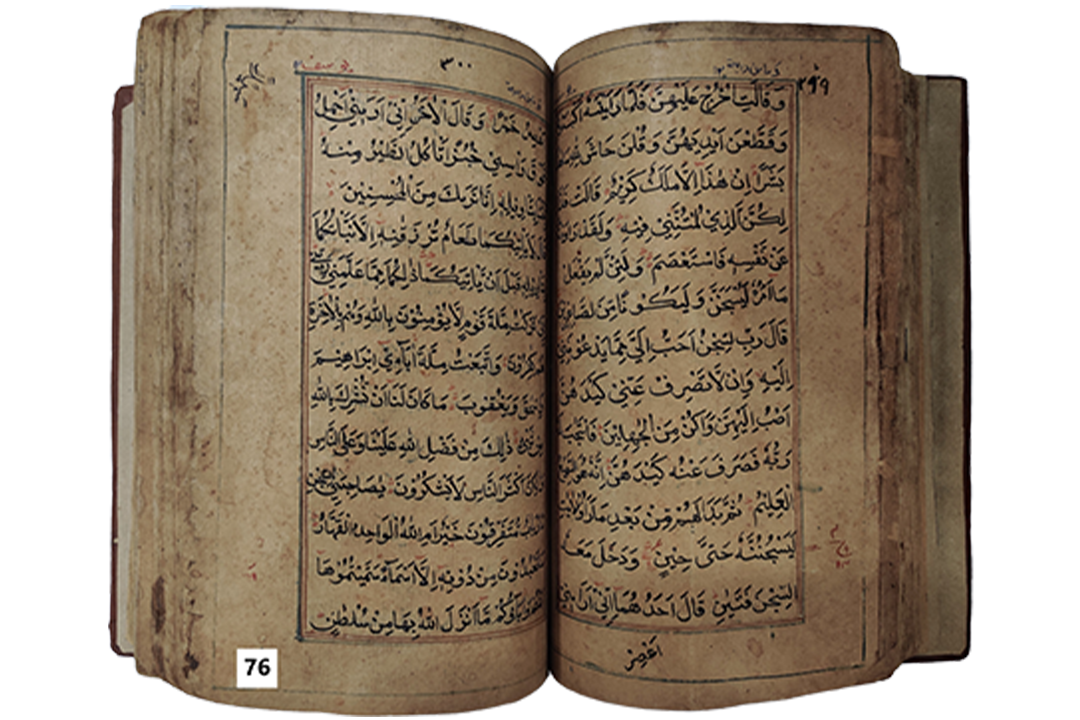 وما من دابة ٢٩٩
وَقَالَتِ اخْرُجْ عَلَيْهِنَّ فَلَمَّا رَاَيْنَهٗ
وَقَطَّعْنَ اَيْدِيَهُنَّ وَقُلْنَ حَاشَ
بَشَرًا اِنْ هٰذَا اِلَّا مَلَكٌ كَرِيْمٌ قَالَتْ
لِكُنَّ الَّذِيْ لُمْتُنَّنِيْ فِيْهِ وَلَقَدْ
عَنْ نَفْسِهٖ فَاسْتَعْصَمَ وَلَئِنْ لَمْ يَفْعَلْ
مَا اٰمُرُهٗ لَيُسْجَنَنَّ وَلَيَكُوْنًا مِنَ الصَّاغِرِيْنَ
قَالَ رَبِّ السِّجْنُ اَحَبُّ اِلَيَّ مِمَّا يَدْعُوْنَنِيْ
اِلَيْهِ وَاِنْ لَا تَصْرِفْ عَنِّيْ كَيْدَهُنَّ
اَصْبُ اِلَيْهِنَّ وَاَكُنْ مِنَ الْجٰهِلِيْنَ فَاسْتَجَابَ
رَبُّهٗ فَصَرَفَ عَنْهُ كَيْدَهُنَّ اِنَّهٗ هُوَ
الْعَلِيْمُ ثُمَّ بَدَا لَهُمْ مِنْ بَعْدِ مَا رَاَوُا
لَيَسْجُنُنَّهٗ حَتّٰى حِيْنٍ وَدَخَلَ مَعَهُ
السِّجْنَ فَتَيٰنِ قَالَ اَحَدُهُمَا اِنِّيْ اَرٰىنِيْ
اَعْصِرُ
٣٠٠
خَمْرًا وَقَالَ الْاٰخَرُ اِنِّيْ اَرٰىنِيْ اَحْمِلُ
فَوْقَ رَاْسِيْ خُبْزًا تَاْكُلُ الطَّيْرُ مِنْهُ
بِتَاْوِيْلِهٖ اِنَّا نَرٰىكَ مِنَ الْمُحْسِنِيْنَ
لَا يَاْتِيْكُمَا طَعَامٌ تُرْزَقٰنِهٖ اِلَّا نَبَّاْتُكُمَا
قَبْلَ اَنْ يَاْتِيَكُمَا ذٰلِكُمَا مِمَّا عَلَّمَنِيْ رَبِّيْ
تَرَكْتُ مِلَّةَ قَوْمٍ لَا يُؤْمِنُوْنَ بِاللّٰهِ وَهُمْ بِالْاٰخِرَةِ
هُمْ كٰفِرُوْنَ وَاتَّبَعْتُ مِلَّةَ اٰبَآءِيْ اِبْرَاهِيْمَ
وَيَعْقُوْبَ مَا كَانَ لَنَا اَنْ نُشْرِكَ بِاللّٰهِ
مِنْ شَيْءٍ ذٰلِكَ مِنْ فَضْلِ اللّٰهِ عَلَيْنَا وَعَلَى النَّاسِ
اَكْثَرَ النَّاسِ لَا يَشْكُرُوْنَ يٰصَاحِبَيِ السِّجْنِ
مُتَفَرِّقُوْنَ خَيْرٌ اَمِ اللّٰهُ الْوَاحِدُ الْقَهَّارُ
تَعْبُدُوْنَ مِنْ دُوْنِهٖ اِلَّا اَسْمَآءً سَمَّيْتُمُوْهَا
وَاٰبَآؤُكُمْ مَا اَنْزَلَ اللّٰهُ بِهَا مِنْ سُلْطٰنٍ
76